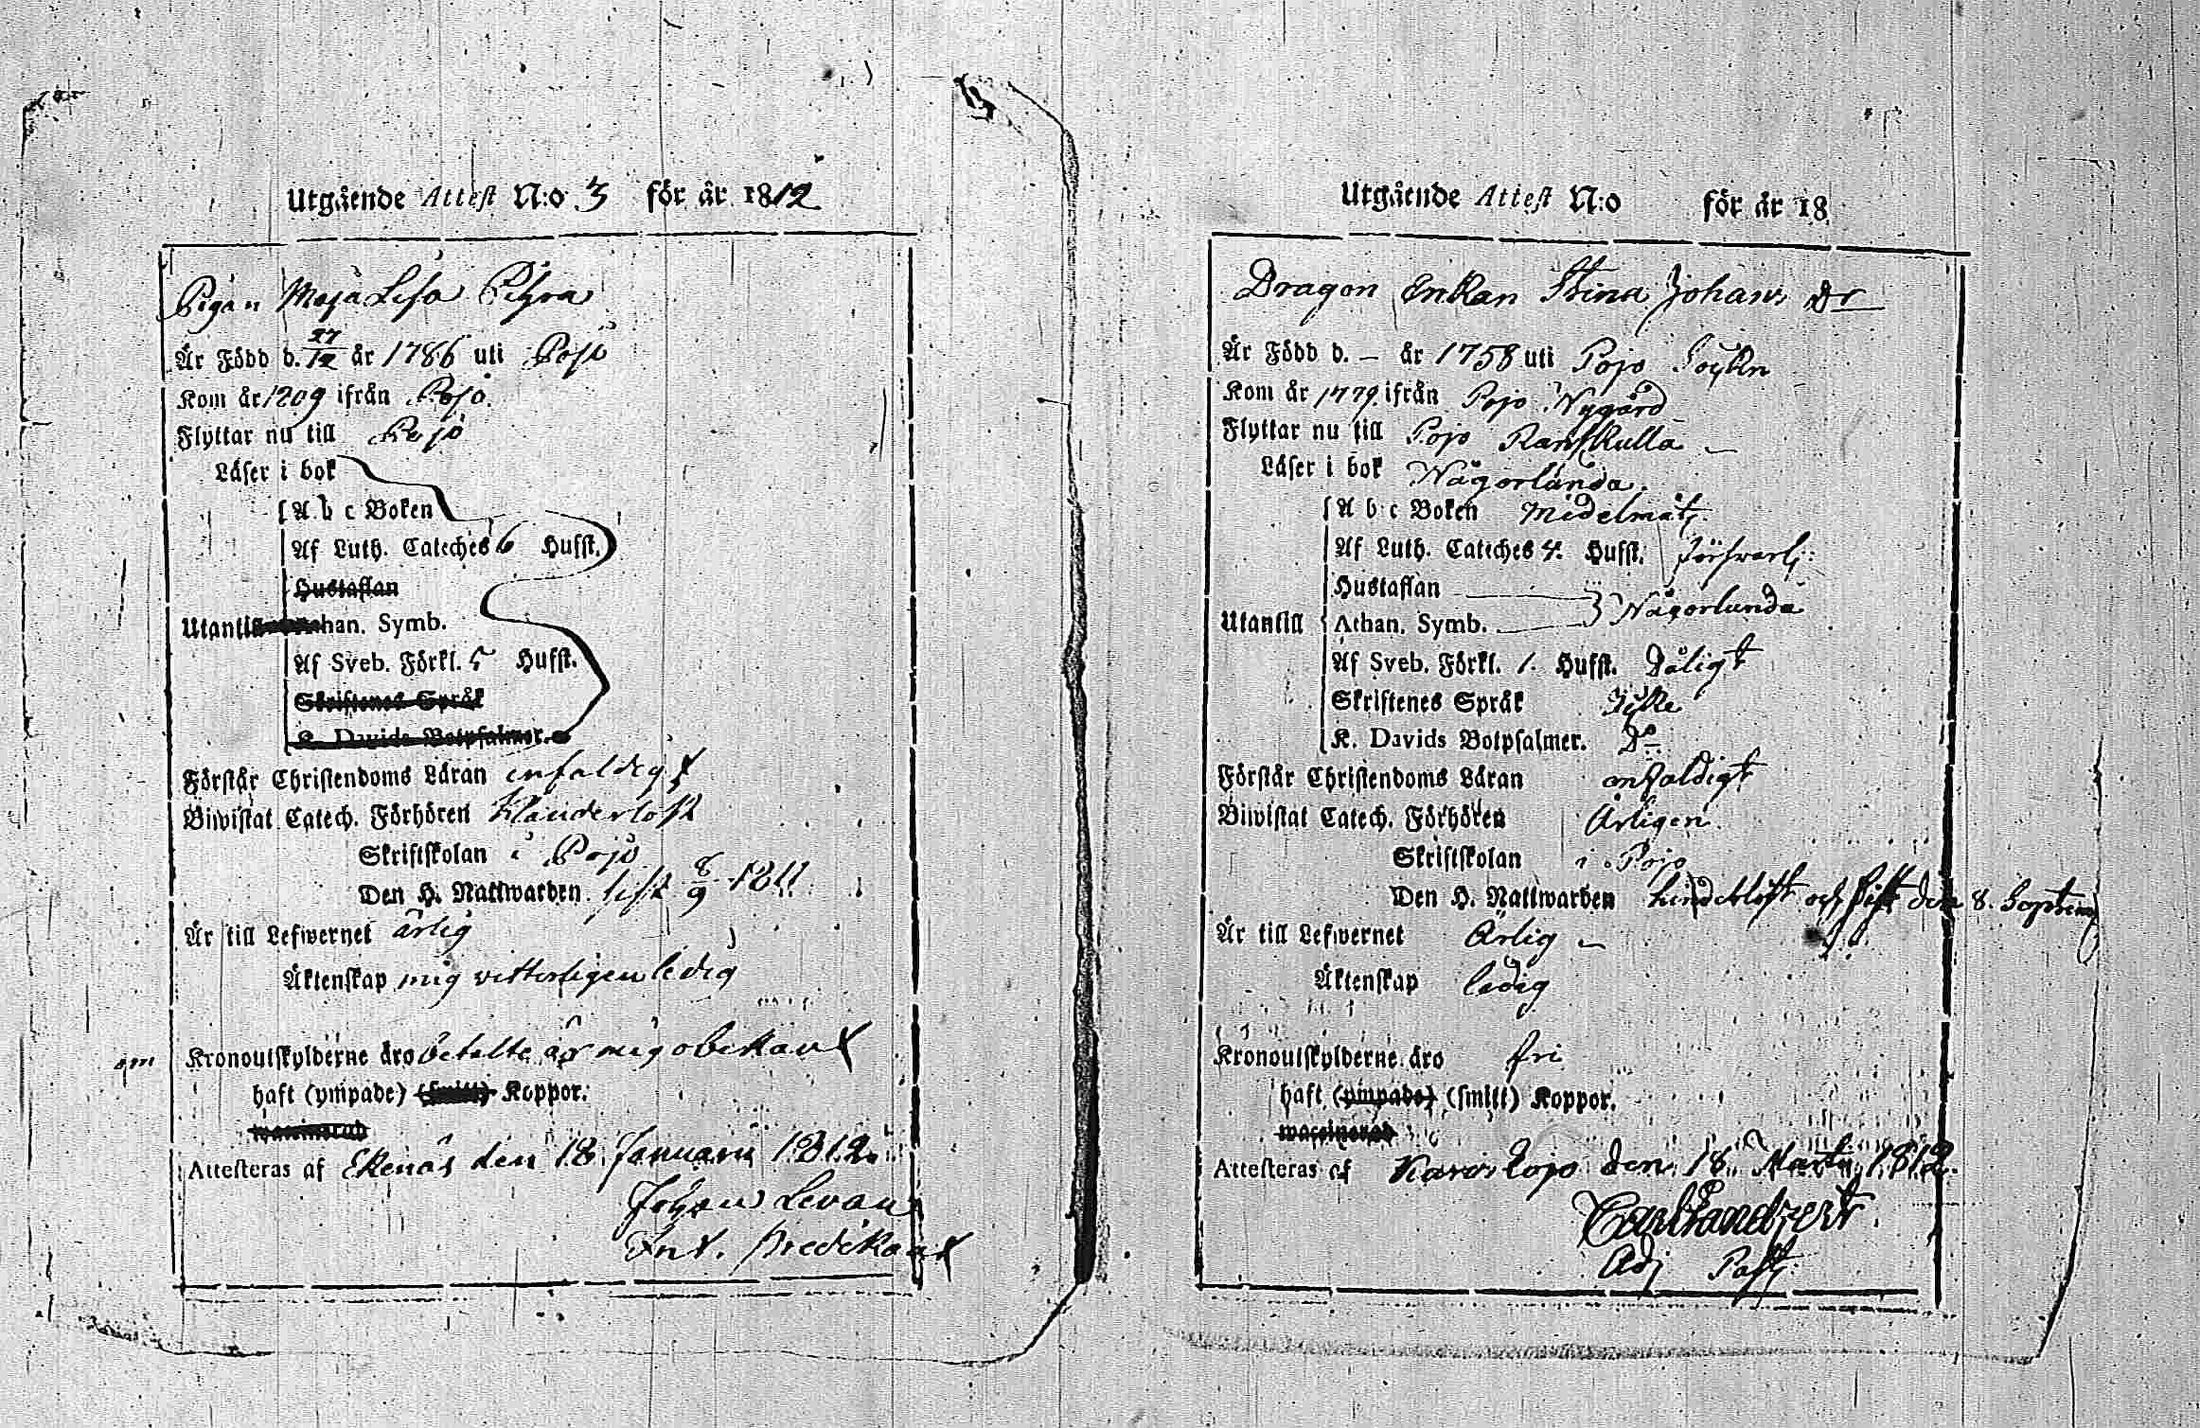 Utgående Attest N:o 3 för år 1812
Pigan Maja Lisa
Är Född d. 27/12 år 1786 uti Pojo
Kom år 1809 ifrån Pojo
Flyttar nu till Pojo
Läser i bok
A b c Boken
Af Luth. Cateches 6 Hufst.
Hustaflan
Utantill Athan. Symb.
Af Sveb. Förkl. 5 Hufst.
Skriftenes Språk
K. Davids Botpsalmer.
Förstår Christendoms Läran enfaldigt
Biwistat Catech. Förhören klanderlöst
Skriftskolan i Pojo
Den H. Nattwarden sist 8/9 1811
Är till Lefwernet ärlig
Äktenskap mig vitterligen ledig
om Kronoutskylderne äro betalte är mig obekant
haft (ympade) (smitt) Koppor.
waccinerad
Attesteras af Ekenäs den 18 Januarii 1812.
Johan Levan
Predikant
Utgående Attest N:o för år 18
Dragon Enkan Stina Johans dr
Är Född d. — år 1758 uti Pojo Sockn
Kom år 1779 ifrån Pojo Nygård
Flyttar nu till Pojo Ranskulla
Läser i bok Någorlunda.
A b c Boken Medelmåt.
Af Luth. Cateches 4. Hufst. försvarl:
Hustaflan
Någorlunda
Utantill Athan. Symb.
Af Sveb. Förkl. 1. Hufst. Dåligt
Skriftenes Språk Icke
K. Davids Botpsalmer. Do
Förstår Christendoms Läran enfaldigt
Biwistat Catech. Förhören Årligen
Skriftskolan i Pojo
Den H. Nattwarden och sist den 8. Septem
Är till Lefwernet Ärlig
Äktenskap ledig
Kronoutskylderne äro fri
haft (ympade) (smitt) Koppor.
waccinerad
Attesteras af Karis Lojo den 18 Martii 1812.
Adj Past: